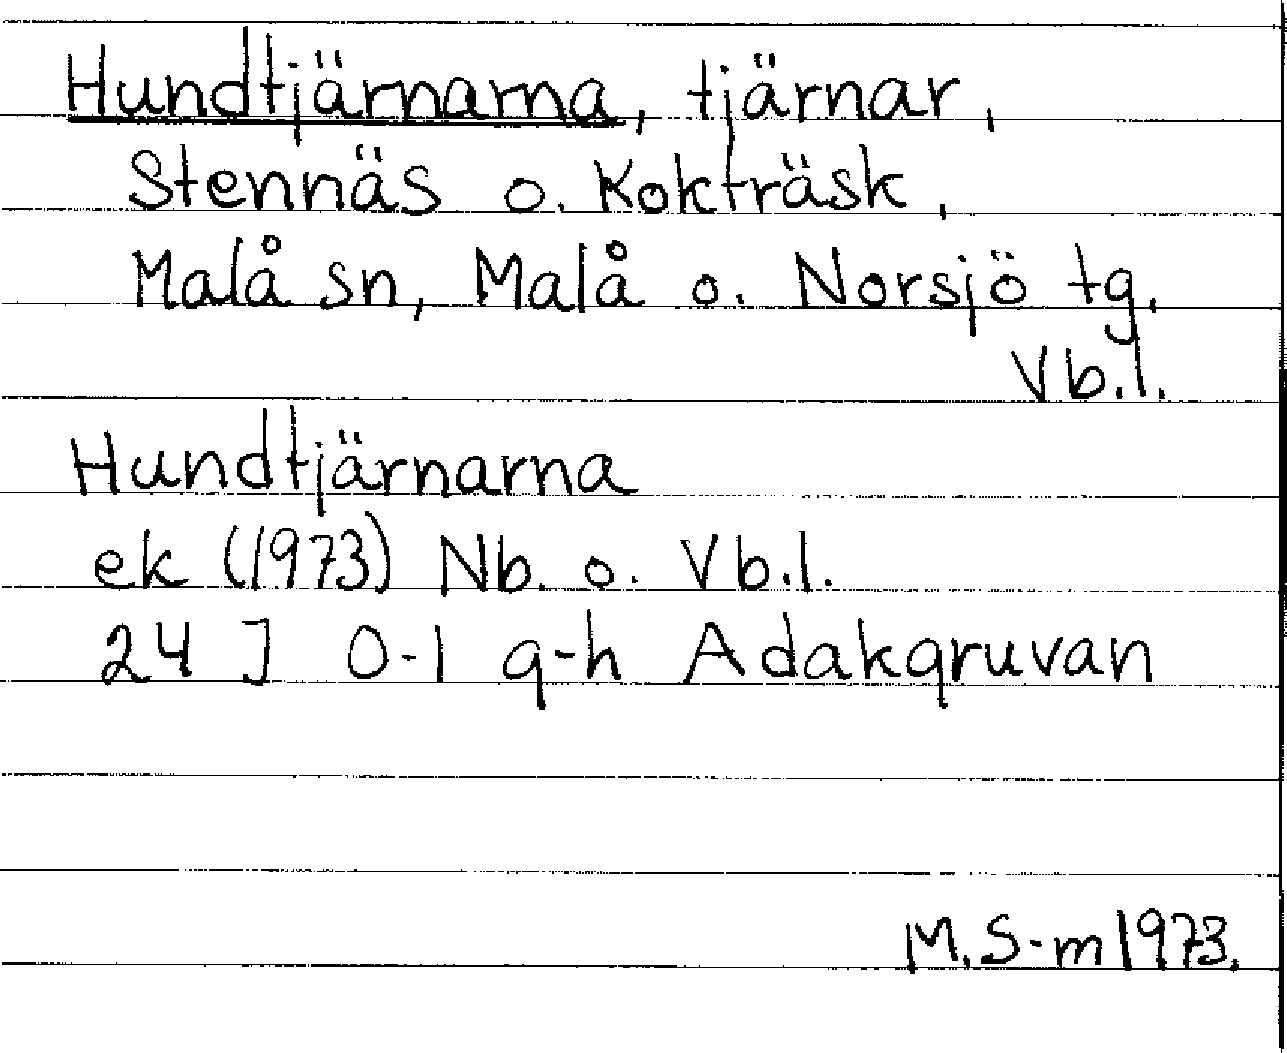 Hundtjärnarna, tjärnar,
Stennäs o. Kokträsk,
Malå sn, Malå o. Norsjö tg.
Vb.l.
Hundtjärnarna
ek (1973) Nb. o. Vb.l.
24 J 0-1 g-h Adakgruvan
M.S-m 1973.